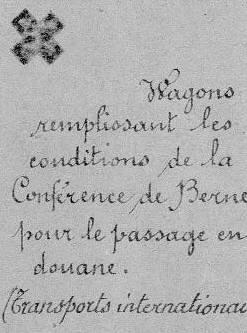 Wagons
remplissant les
conditions de la
Conférence de Berne
pour le passage en
douane.
(Transports internationau